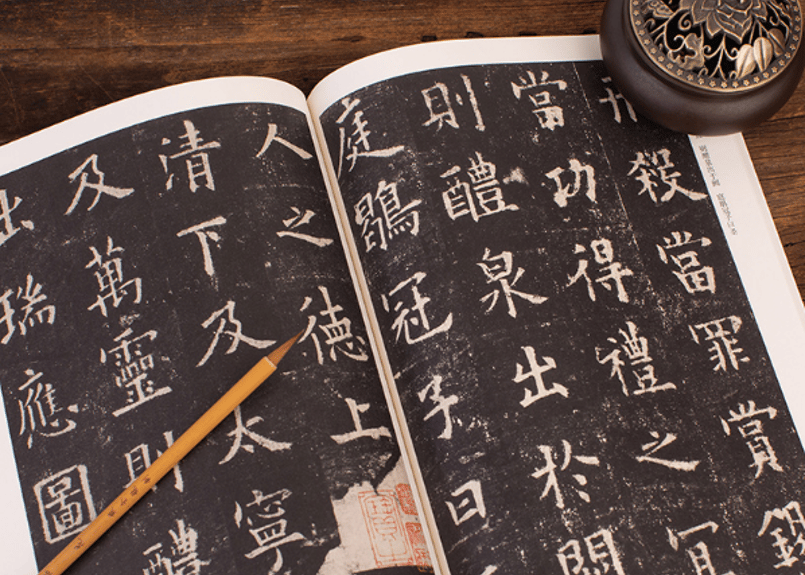 殺當罪賞錫
當功得禮之宜
則醴泉出於闕
庭鶡冠子曰
人之德上
清下及太寧
及萬靈則醴
出瑞應圖